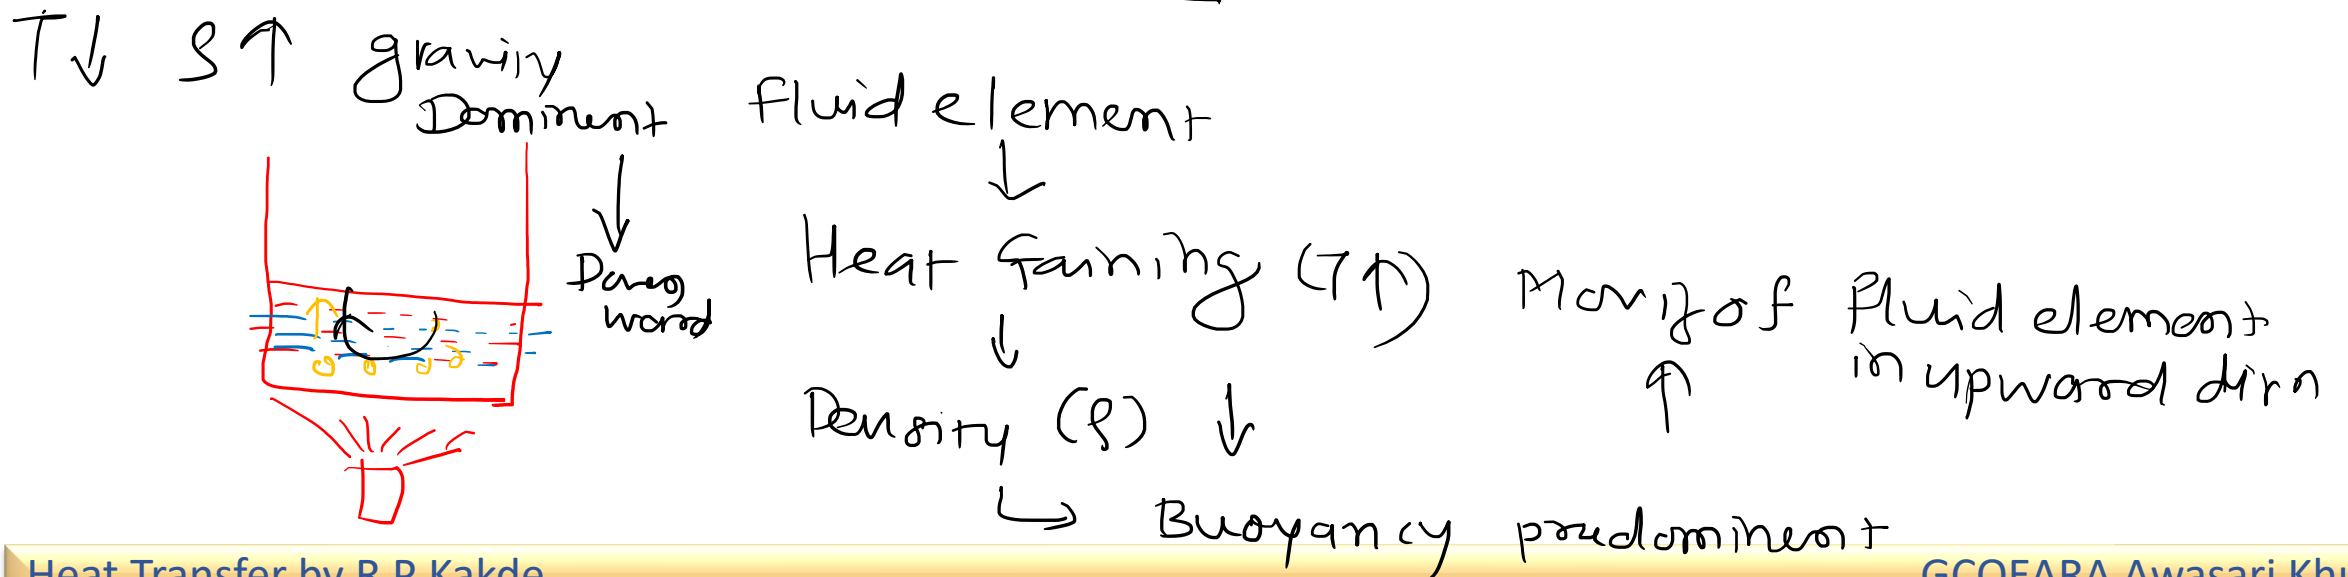 T↓ ρ↑ gravity
Dominent
↓
Down
ward
Fluid element
↓
Heat Gaining (T↑)
↓
Density (ρ) ↓
↳ Buoyancy predominent
↑
of fluid element
in upward dirn
Heat Transfer by R P Kakde
GCOEARA Awasari Khu